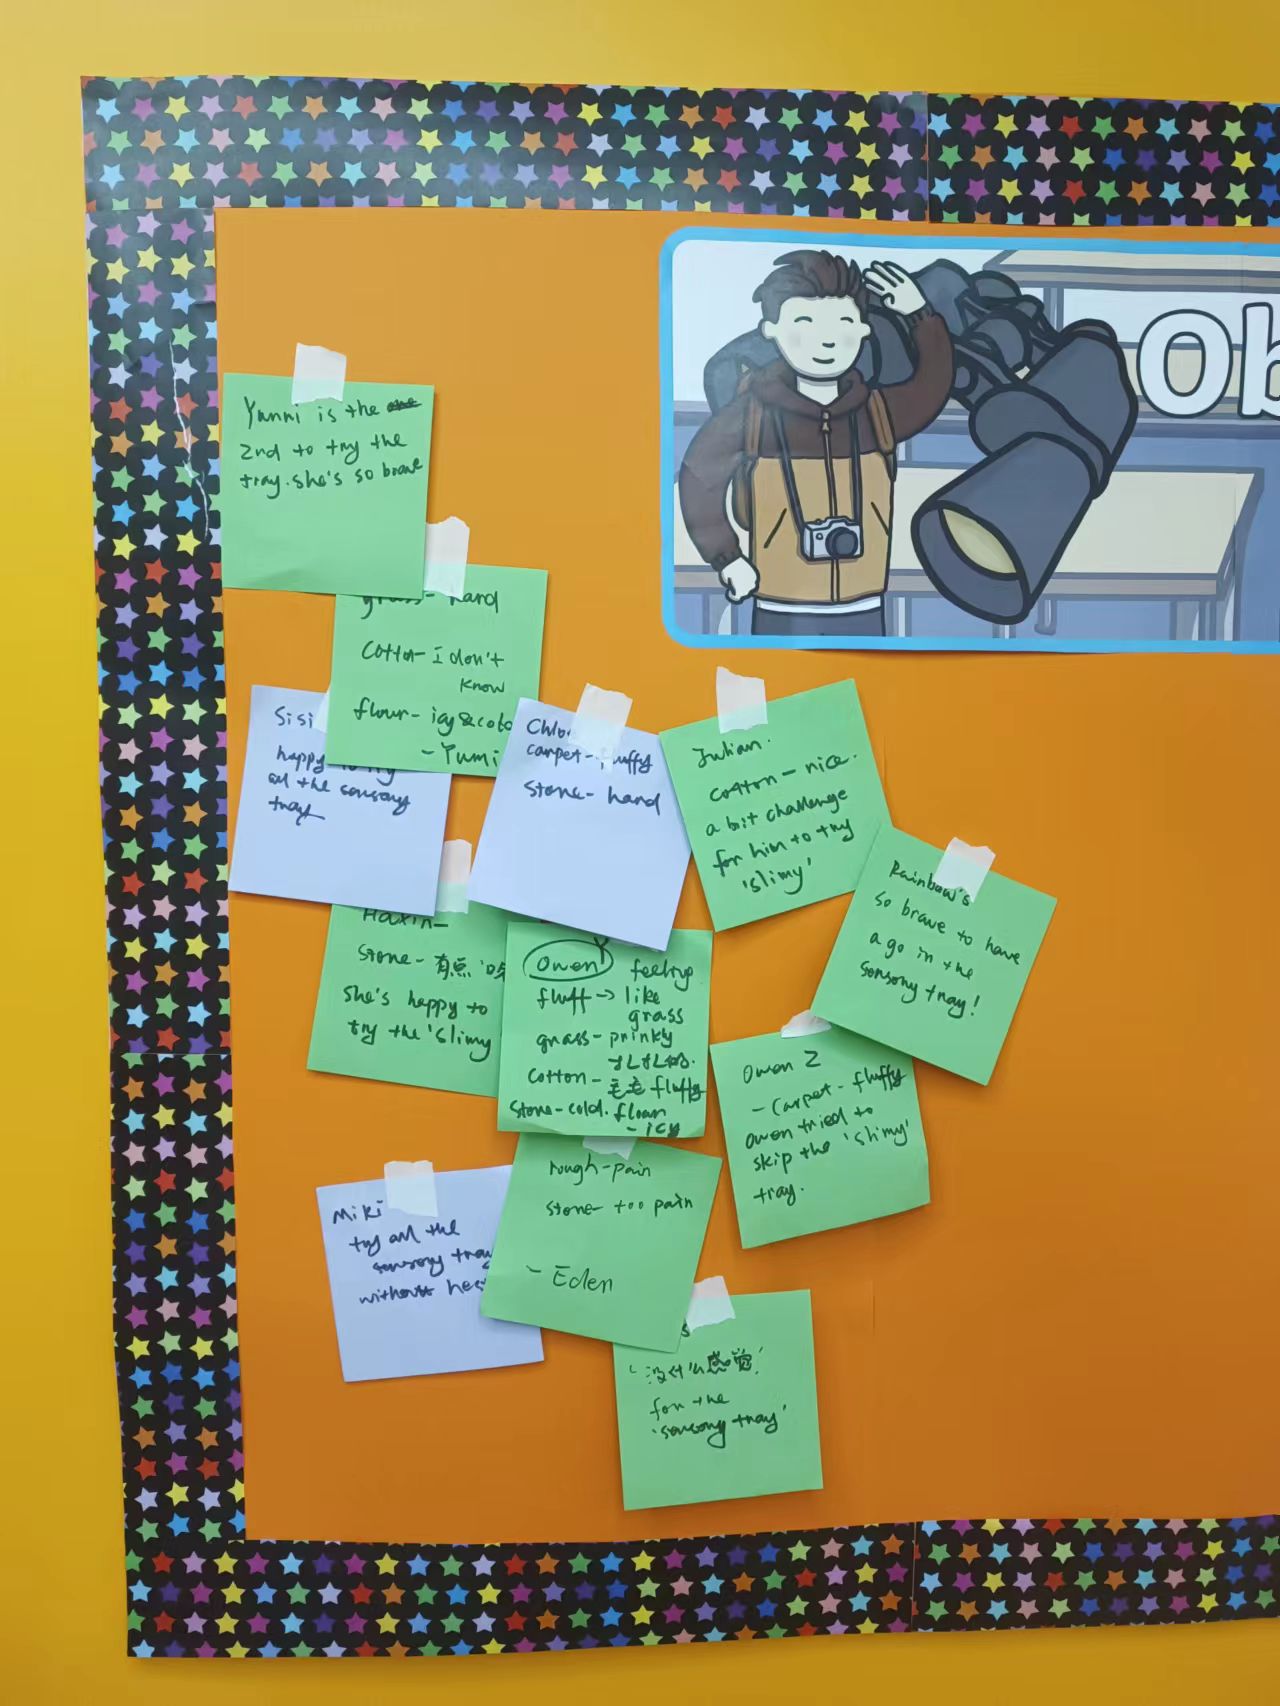 Ob
Yunni is the
2nd to try the
tray. she's so brave
grass- hard
Cotton- I don't
know
flour- icy & cold
- Yumi
Sisi
happy to try
all the sensory
tray
Chlo
carpet- fluffy
Stone- hard
Julian.
cotton - nice.
a bit challenge
for him to try
'slimy'
Rainbow's
so brave to have
a go in the
sensory tray!
Haxin-
stone- 有点
she's happy to
try the 'slimy
Owen Y
feeling
fluff → like
grass
grass- prinky
扎扎的.
cotton- 毛毛 fluffy
stone-cold. floar
- icy
Owen Z
- Carpet- fluffy
Owen tried to
skip the 'slimy'
tray.
Miki
try all the
sensory tray
without hes
rough-pain
stone- too pain
- Eden
s
'没什么感觉'
for the
'sensory tray'